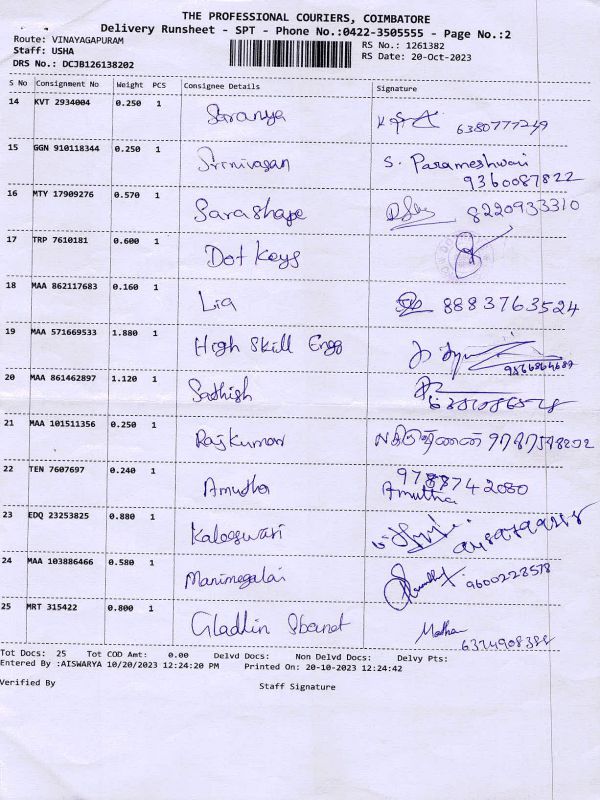 THE PROFESSIONAL COURIERS, COIMBATORE
Delivery Runsheet - SPT - Phone No.:0422-3505555 - Page No.:2
Route: VINAYAGAPURAM
Staff: USHA
DRS No.: DCJB126138202
RS No.: 1261382
RS Date: 20-Oct-2023
S No Consignment No Weight PCS Consignee Details Signature
14 KVT 2934004 0.250 1 Saranya 6380777249
15 GGN 910118344 0.250 1 Srinivasan S. Parameshwari
9360087822
16 MTY 17909276 0.570 1 Sarashape 8220933310
17 TRP 7610181 0.600 1 Dot Keys
18 MAA 862117683 0.160 1 Lia 8883763524
19 MAA 571669533 1.880 1 High Skill Engg
20 MAA 861462897 1.120 1 Sathish
21 MAA 101511356 0.250 1 Rajkumar
22 TEN 7607697 0.240 1 Amudha 9788742080
Amutha
23 EDQ 23253825 0.880 1 Kaleeswari
24 MAA 103886466 0.580 1 Manimegalai 9600223578
25 MRT 315422 0.800 1 Gladlin
Tot Docs: 25 Tot COD Amt: 0.00 Delvd Docs: Non Delvd Docs: Delvy Pts:
Entered By :AISWARYA 10/20/2023 12:24:20 PM Printed On: 20-10-2023 12:24:42
Verified By Staff Signature